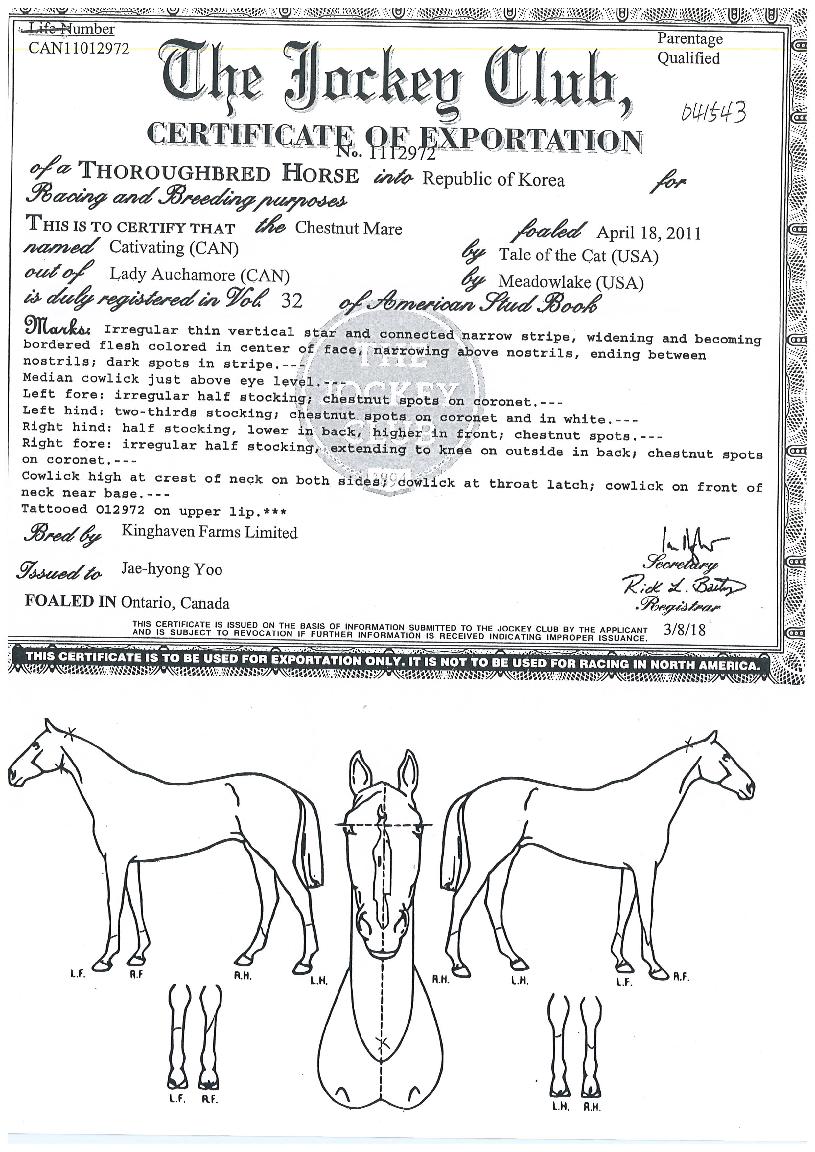 Life Number
CAN11012972
Parentage
Qualified
The Jockey Club,
041543
CERTIFICATE OF EXPORTATION
No. 1112972
of a THOROUGHBRED HORSE into Republic of Korea for
Racing and Breeding purposes
THIS IS TO CERTIFY THAT the Chestnut Mare foaled April 18, 2011
named Cativating (CAN) by Tale of the Cat (USA)
out of Lady Auchamore (CAN) by Meadowlake (USA)
is duly registered in Vol. 32 of American Stud Book
Marks: Irregular thin vertical star and connected narrow stripe, widening and becoming
bordered flesh colored in center of face, narrowing above nostrils, ending between
nostrils; dark spots in stripe.---
Median cowlick just above eye level.---
Left fore: irregular half stocking; chestnut spots on coronet.---
Left hind: two-thirds stocking; chestnut spots on coronet and in white.---
Right hind: half stocking, lower in back, higher in front; chestnut spots.---
Right fore: irregular half stocking, extending to knee on outside in back; chestnut spots
on coronet.---
Cowlick high at crest of neck on both sides; cowlick at throat latch; cowlick on front of
neck near base.---
Tattooed O12972 on upper lip.***
THE
JOCKEY
CLUB
1894
Bred by Kinghaven Farms Limited
Secretary
Issued to Jae-hyong Yoo
Rick L. Bailey
Registrar
FOALED IN Ontario, Canada
THIS CERTIFICATE IS ISSUED ON THE BASIS OF INFORMATION SUBMITTED TO THE JOCKEY CLUB BY THE APPLICANT
AND IS SUBJECT TO REVOCATION IF FURTHER INFORMATION IS RECEIVED INDICATING IMPROPER ISSUANCE.
3/8/18
THIS CERTIFICATE IS TO BE USED FOR EXPORTATION ONLY. IT IS NOT TO BE USED FOR RACING IN NORTH AMERICA.
L.F. R.F R.H. L.H. R.H. L.H. L.F. R.F.
L.F. R.F. L.H. R.H.